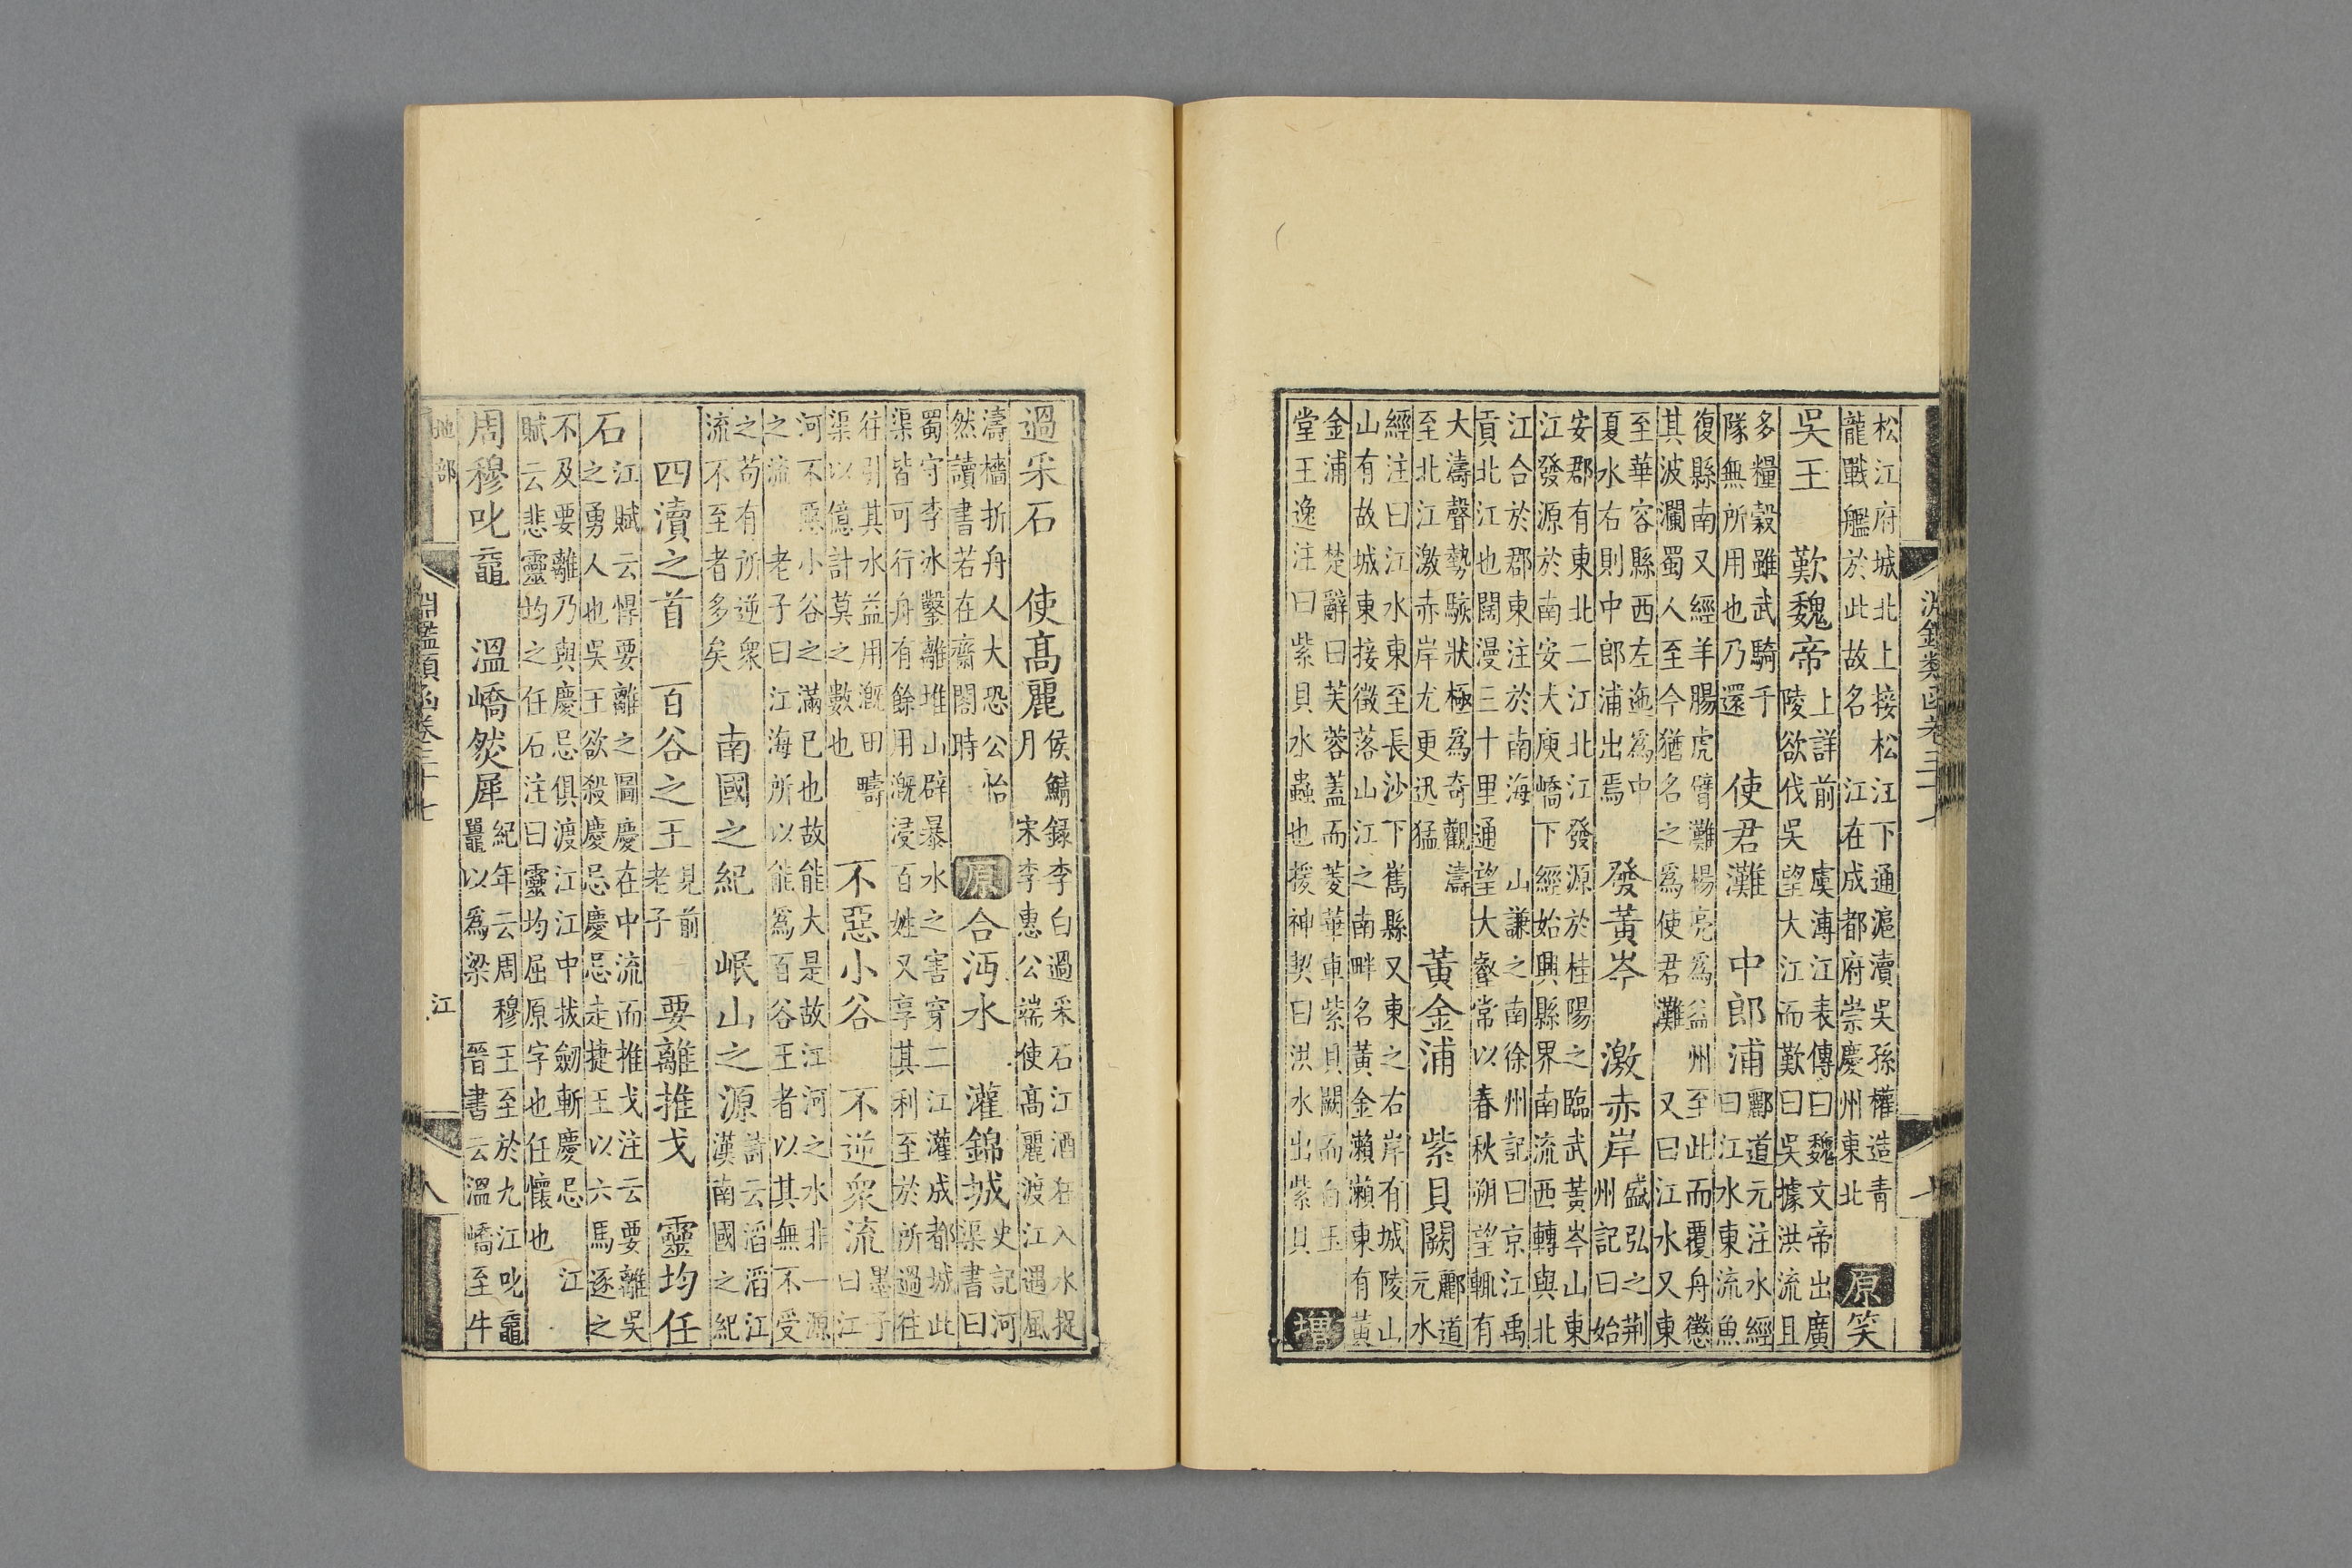 淵鑑類函卷三十七
松江府城北上接松江下通滬瀆吳孫權造青
龍戰艦於此故名　江在成都府崇慶州東北
原 笑
吳王　歎魏帝
上詳前　虞溥江表傳曰魏文帝出廣
陵欲伐吳望大江而歎曰吳據洪流且
多糧穀雖武騎千
隊無所用也乃還
使君灘　中郎浦
酈道元注水經
曰江水東流魚
復縣南又經羊腸虎臂灘楊亮爲益州至此而覆舟懲
其波瀾蜀人至今猶名之爲使君灘　又曰江水又東
至華容縣西左迤爲中
夏水右則中郎浦出焉
發黃岑　激赤岸
盛弘之荆
州記曰始
安郡有東北二江北江發源於桂陽之臨武黃岑山東
江發源於南安大庾嶠下經始興縣界南流西轉與北
江合於郡東注於南海　山謙之南徐州記曰京江禹
貢北江也闊漫三十里通望大壑常以春秋朔望輒有
大濤聲勢駭狀極爲奇觀濤
至北江激赤岸尤更迅猛
黃金浦　紫貝闕
酈道
元水
經注曰江水東至長沙下雋縣又東之右岸有城陵山
山有故城東接微落山江之南畔名黃金瀨瀨東有黃
金浦　楚辭曰芙蓉蓋而菱華車紫貝闕而白玉
堂王逸注曰紫貝水蟲也援神契曰洪水出紫貝
增
過采石　使高麗
侯鯖錄李白過采石江酒狂入水捉
月　宋李惠公端使高麗渡江遇風
濤檣折舟人大恐公怡
然讀書若在齋閣時
原 合沔水　灌錦城
史記河
渠書曰
蜀守李冰鑿離堆山辟暴水之害穿二江灌成都城此
渠皆可行舟有餘用漑浸百姓又享其利至於所過往
往引其水益用漑田疇
渠以億計莫之數也
不惡小谷　不逆衆流
墨子
曰江
河不惡小谷之滿已也故能大是故江河之水非一源
之流　老子曰江海所以能爲百谷王者以其無不受
之苟有所逆衆
流不至者多矣
南國之紀　岷山之源
詩云滔滔江
漢南國之紀
四瀆之首　百谷之王
見前
老子
要離推戈　靈均任
石
江賦云悍要離之圖慶在中流而推戈注云要離吳
之勇人也吳王欲殺慶忌慶忌走捷王以六馬逐之
不及要離乃與慶忌俱渡江江中拔劒斬慶忌　江
賦云悲靈均之任石注曰靈均屈原字也任懷也
周穆叱黿　溫嶠燃犀
紀年云周穆王至於九江叱黿
鼉以爲梁　晉書云溫嶠至牛
地部
淵鑑類函卷三十七
江
八